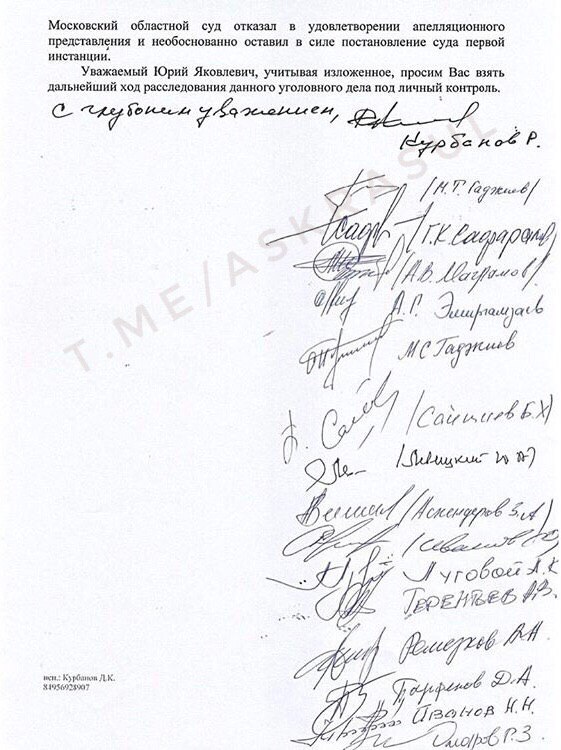 Московский областной суд отказал в удовлетворении апелляционного
представления и необоснованно оставил в силе постановление суда первой
инстанции.
Уважаемый Юрий Яковлевич, учитывая изложенное, просим Вас взять
дальнейший ход расследования данного уголовного дела под личный контроль.
С глубоким уважением,
Курбанов Р.
T.ME/ASKRASUL
/М.Т. Гаджиев/
/А.В. Маграмов/
А.Г. Эмиргамзаев
М С Гаджиев
/Аскендеров З.А/
Луговой А.К
Терентьев А.В.
Ремезков А.А.
Парфенов Д.А.
Иванов Н.Н.
Омаров Р.З.
исп.: Курбанов Д.К.
84956928907